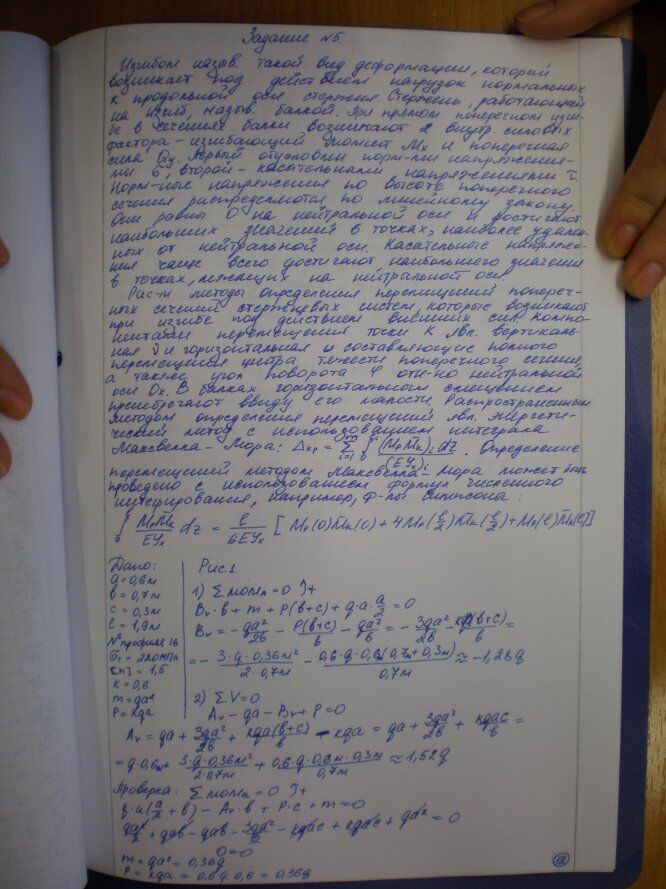 Задание №5.
Изгибом назыв. такой вид деформации, который
возникает под действием нагрузок нормальных
к продольной оси стержня. Стержень, работающий
на изгиб, назыв. балкой. При прямом поперечном изги-
бе в сечениях балки возникают 2 внутр. силовых
фактора - изгибающий момент Mx и поперечная
сила Qy. Первый обусловлен норм-ми напряжения-
ми σ, второй - касательными напряжениями τ.
Норм-ные напряжения по высоте поперечного
сечения распределяются по линейному закону.
Они равны 0 на нейтральной оси и достигают
наибольших значений в точках, наиболее удален-
ных от нейтральной оси. Касательные напряже-
ния чаще всего достигают наибольшего значения
в точках, лежащих на нейтральной оси.
Рас-м методы определения перемещений попереч-
ных сечений стержневых систем, которые возникают
при изгибе под действием внешних сил. Компо-
нентами перемещения точки К явл. вертикаль-
ная и горизонтальная составляющие полного
перемещения центра тяжести поперечного сечения,
а также угол поворота φ отн-но нейтральной
оси Ox. В балках горизонтальным смещением
пренебрегают ввиду его малости. Распространенным
методом определения перемещений явл. энергети-
ческий метод с использованием интеграла
Максвелла-Мора: Δкр = Σ ∫ (Mp M̄k)i dz / (EYx)i. Определение
перемещений методом Максвелла-Мора может быть
проведено с использованием формул численного
интегрирования, например, ф-лы Симпсона:
∫ Mp M̄k / EYx dz = ℓ / 6EYx [Mp(0)M̄k(0) + 4Mp(ℓ/2)M̄k(ℓ/2) + Mp(ℓ)M̄k(ℓ)]
Дано:
a = 0,6м
b = 0,7м
c = 0,3м
ℓ = 1,9м
№ профиля 16
[n] = 1,5
k = 0,6
m = qa²
P = kqa
Рис.1.
1) Σmom = 0
Bv·b + m + P(b+c) + q·a·a/2 = 0
Bv = -qa²/2b - P(b+c)/b - qa²/b = -3qa²/2b - kqa(b+c)/b =
= -3·q·0,36м²/2·0,7м - 0,6·q·0,6м(0,7м+0,3м)/0,7м ≈ -1,28q
2) ΣV = 0
Av - qa - Bv + P = 0
Av = qa + 3qa²/2b + kqa(b+c)/b - kqa = qa + 3qa²/2b + kqac/b =
= q·0,6м + 3·q·0,36м²/2·0,7м + 0,6·q·0,6м·0,3м/0,7м ≈ 1,52q
Проверка: Σmom = 0
q·a(a/2 + b) - Av·b + P·c + m = 0
qa²/2 + qab - qab - 3qa²/2 - kqac + kqac + qa² = 0
0 = 0
m = qa² = 0,36q
P = kqa = 0,6q·0,6 = 0,36q